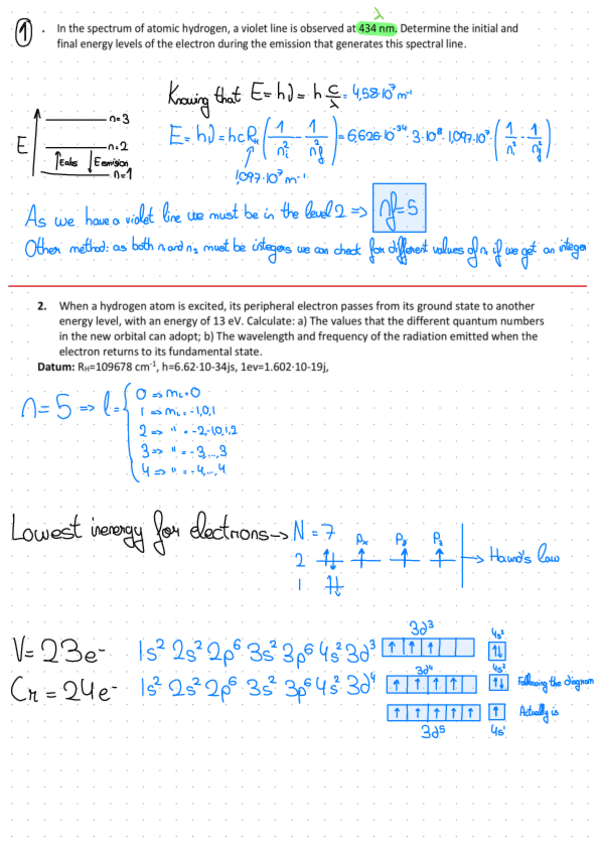 λ
1 . In the spectrum of atomic hydrogen, a violet line is observed at 434 nm. Determine the initial and
final energy levels of the electron during the emission that generates this spectral line.
Knowing that E=hν = h c/λ = 4,58·10⁷ m⁻¹
n=3
E
n=2
Eabs Eemission
n=1
E=hν=hcRH(1/ni² - 1/nf²)=6,626·10⁻³⁴·3·10⁸·1,097·10⁷·(1/n² - 1/nf²)
1,097·10⁷m⁻¹
As we have a violet line we must be in the level 2 => nf=5
Other method: as both n and n₂ must be integers we can check for different values of n, if we get an integer
2. When a hydrogen atom is excited, its peripheral electron passes from its ground state to another
energy level, with an energy of 13 eV. Calculate: a) The values that the different quantum numbers
in the new orbital can adopt; b) The wavelength and frequency of the radiation emitted when the
electron returns to its fundamental state.
Datum: RH=109678 cm⁻¹, h=6.62·10-34js, 1ev=1.602·10-19j,
n=5 => l=
0 => mL=0
1 => mL=-1,0,1
2 => " =-2,-1,0,1,2
3 => " =-3,...,3
4 => " =-4,...,4
Lowest inenergy for electrons → N=7
Px Py Pz
2 ⥮ ↑ ↑ ↑ → Haund's law
1 ⥮
V=23e⁻ 1s² 2s² 2p⁶ 3s² 3p⁶ 4s² 3d³
3d³ ↑ ↑ ↑ 4s² ↑↓
Cr=24e⁻ 1s² 2s² 2p⁶ 3s² 3p⁶ 4s² 3d⁴
3d⁴ ↑ ↑ ↑ ↑ 4s² ↑↓ Following the diagram
↑ ↑ ↑ ↑ ↑ ↑ Actually is
3d⁵ 4s¹